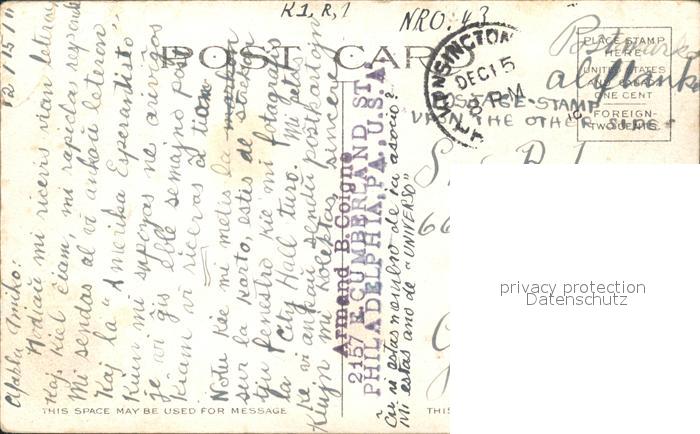 K1, R, 1
NRO. 43
12/15/11
POST CARD
KENSINGTON
DEC 15
8 PM
PLACE STAMP
HERE
UNITED STATES
ONE CENT
FOREIGN-
TWO CENTS.
POSTAGE-STAMP
UPON THE OTHER SIDE
Establa Amiko:
Hodiaŭ mi ricevis vian leteron
Kaj, kiel ĉiam, mi rapide respondas
Mi sendas al vi ankoŭ leteron
Kaj la "Amerika Esperantisto
Kiun mi supozas ne
je vi ĝis eble semajno post
Kiam vi ricevas ĉi tion
Notu ke mi metis la
sur la karto, estis de
tiu fenestro kie mi fotografis
la City Hall turo. Mi petas
ke vi ankaŭ sendu poŝtkartojn
kiujn mi kolektas sincere
Armand B. Coigne
2157 E. CUMBERLAND ST.
PHILADELPHIA, PA., U.S.A.
Ĉu vi estas membro de ia asocio?
Mi estas ano de "UNIVERSO"
66
THIS SPACE MAY BE USED FOR MESSAGE
THIS
privacy protection
Datenschutz